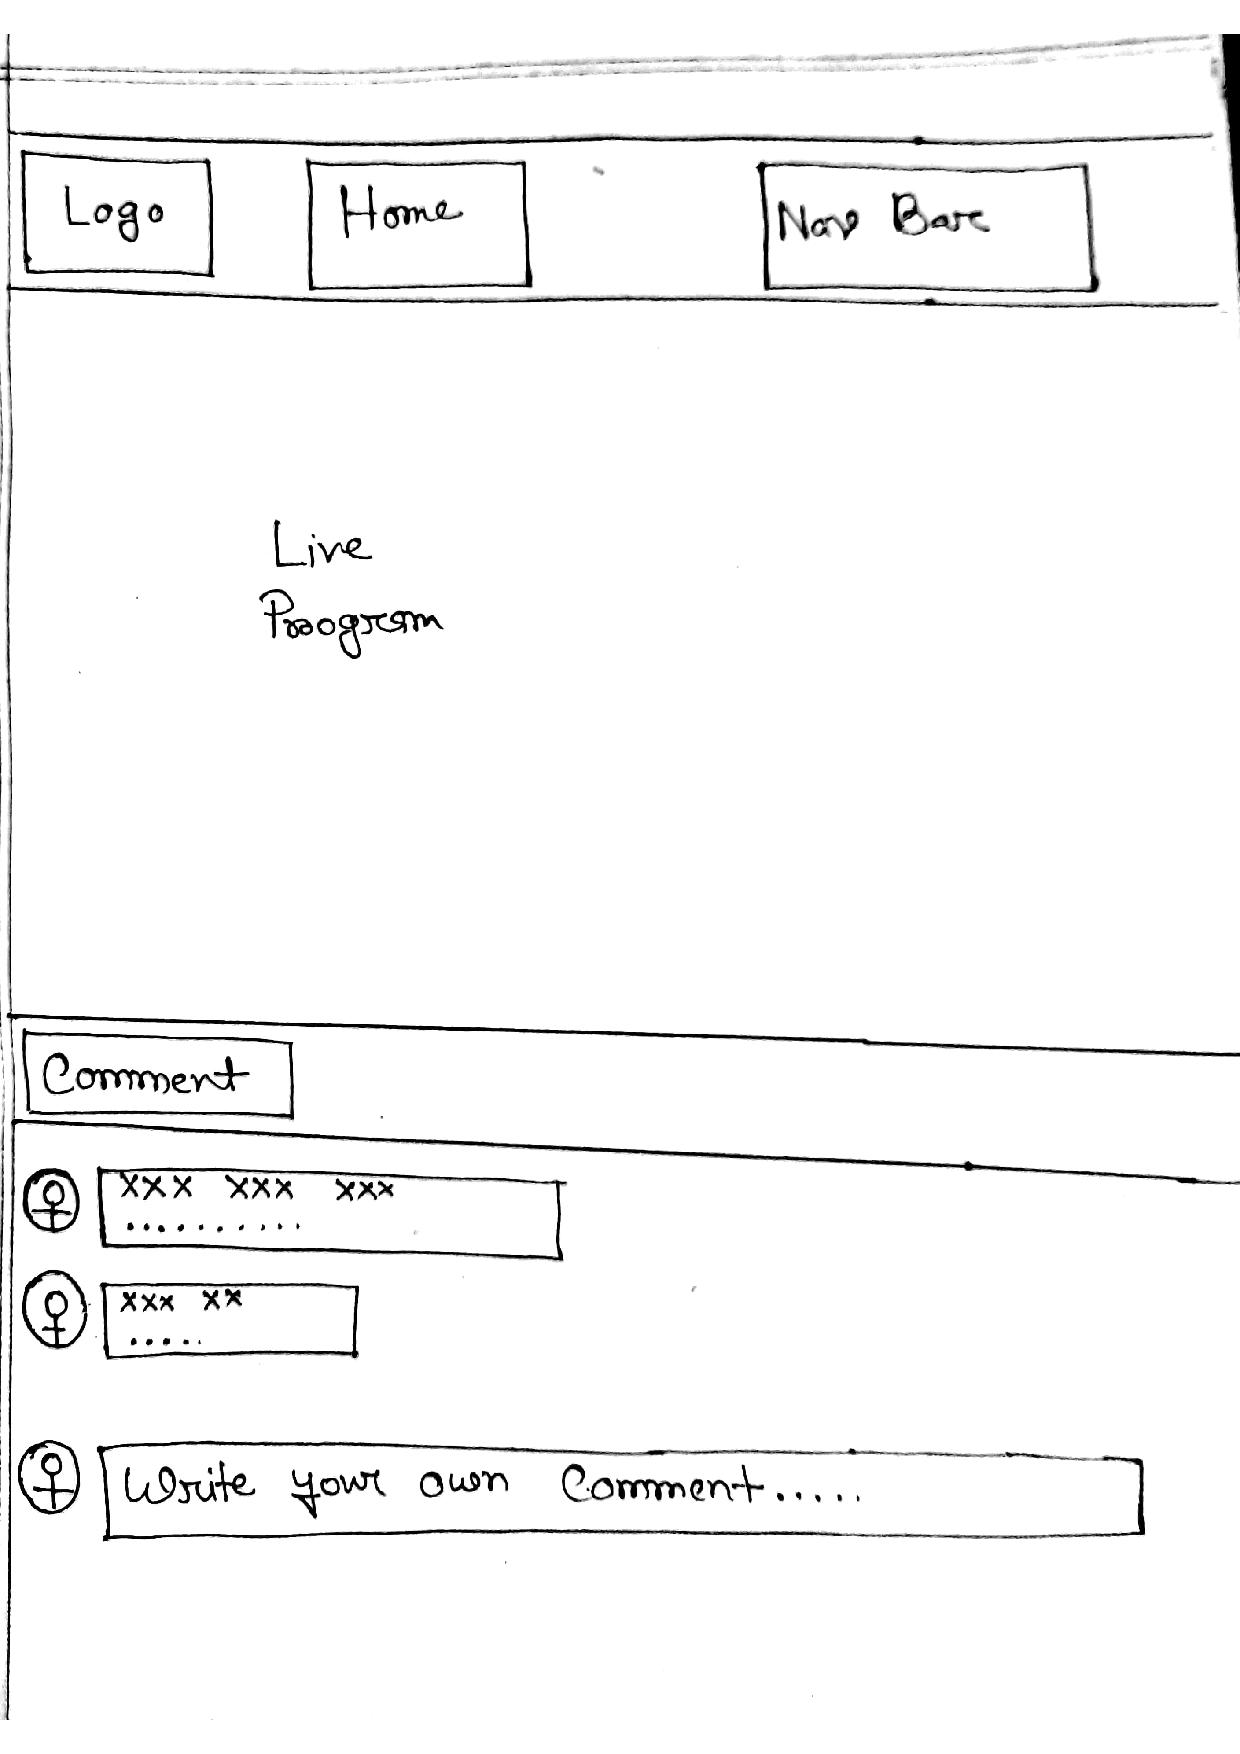 Logo Home Nav Bar
Live
Program
Comment
xxx xxx xxx
..........
xxx xx
.....
Write your own Comment.....